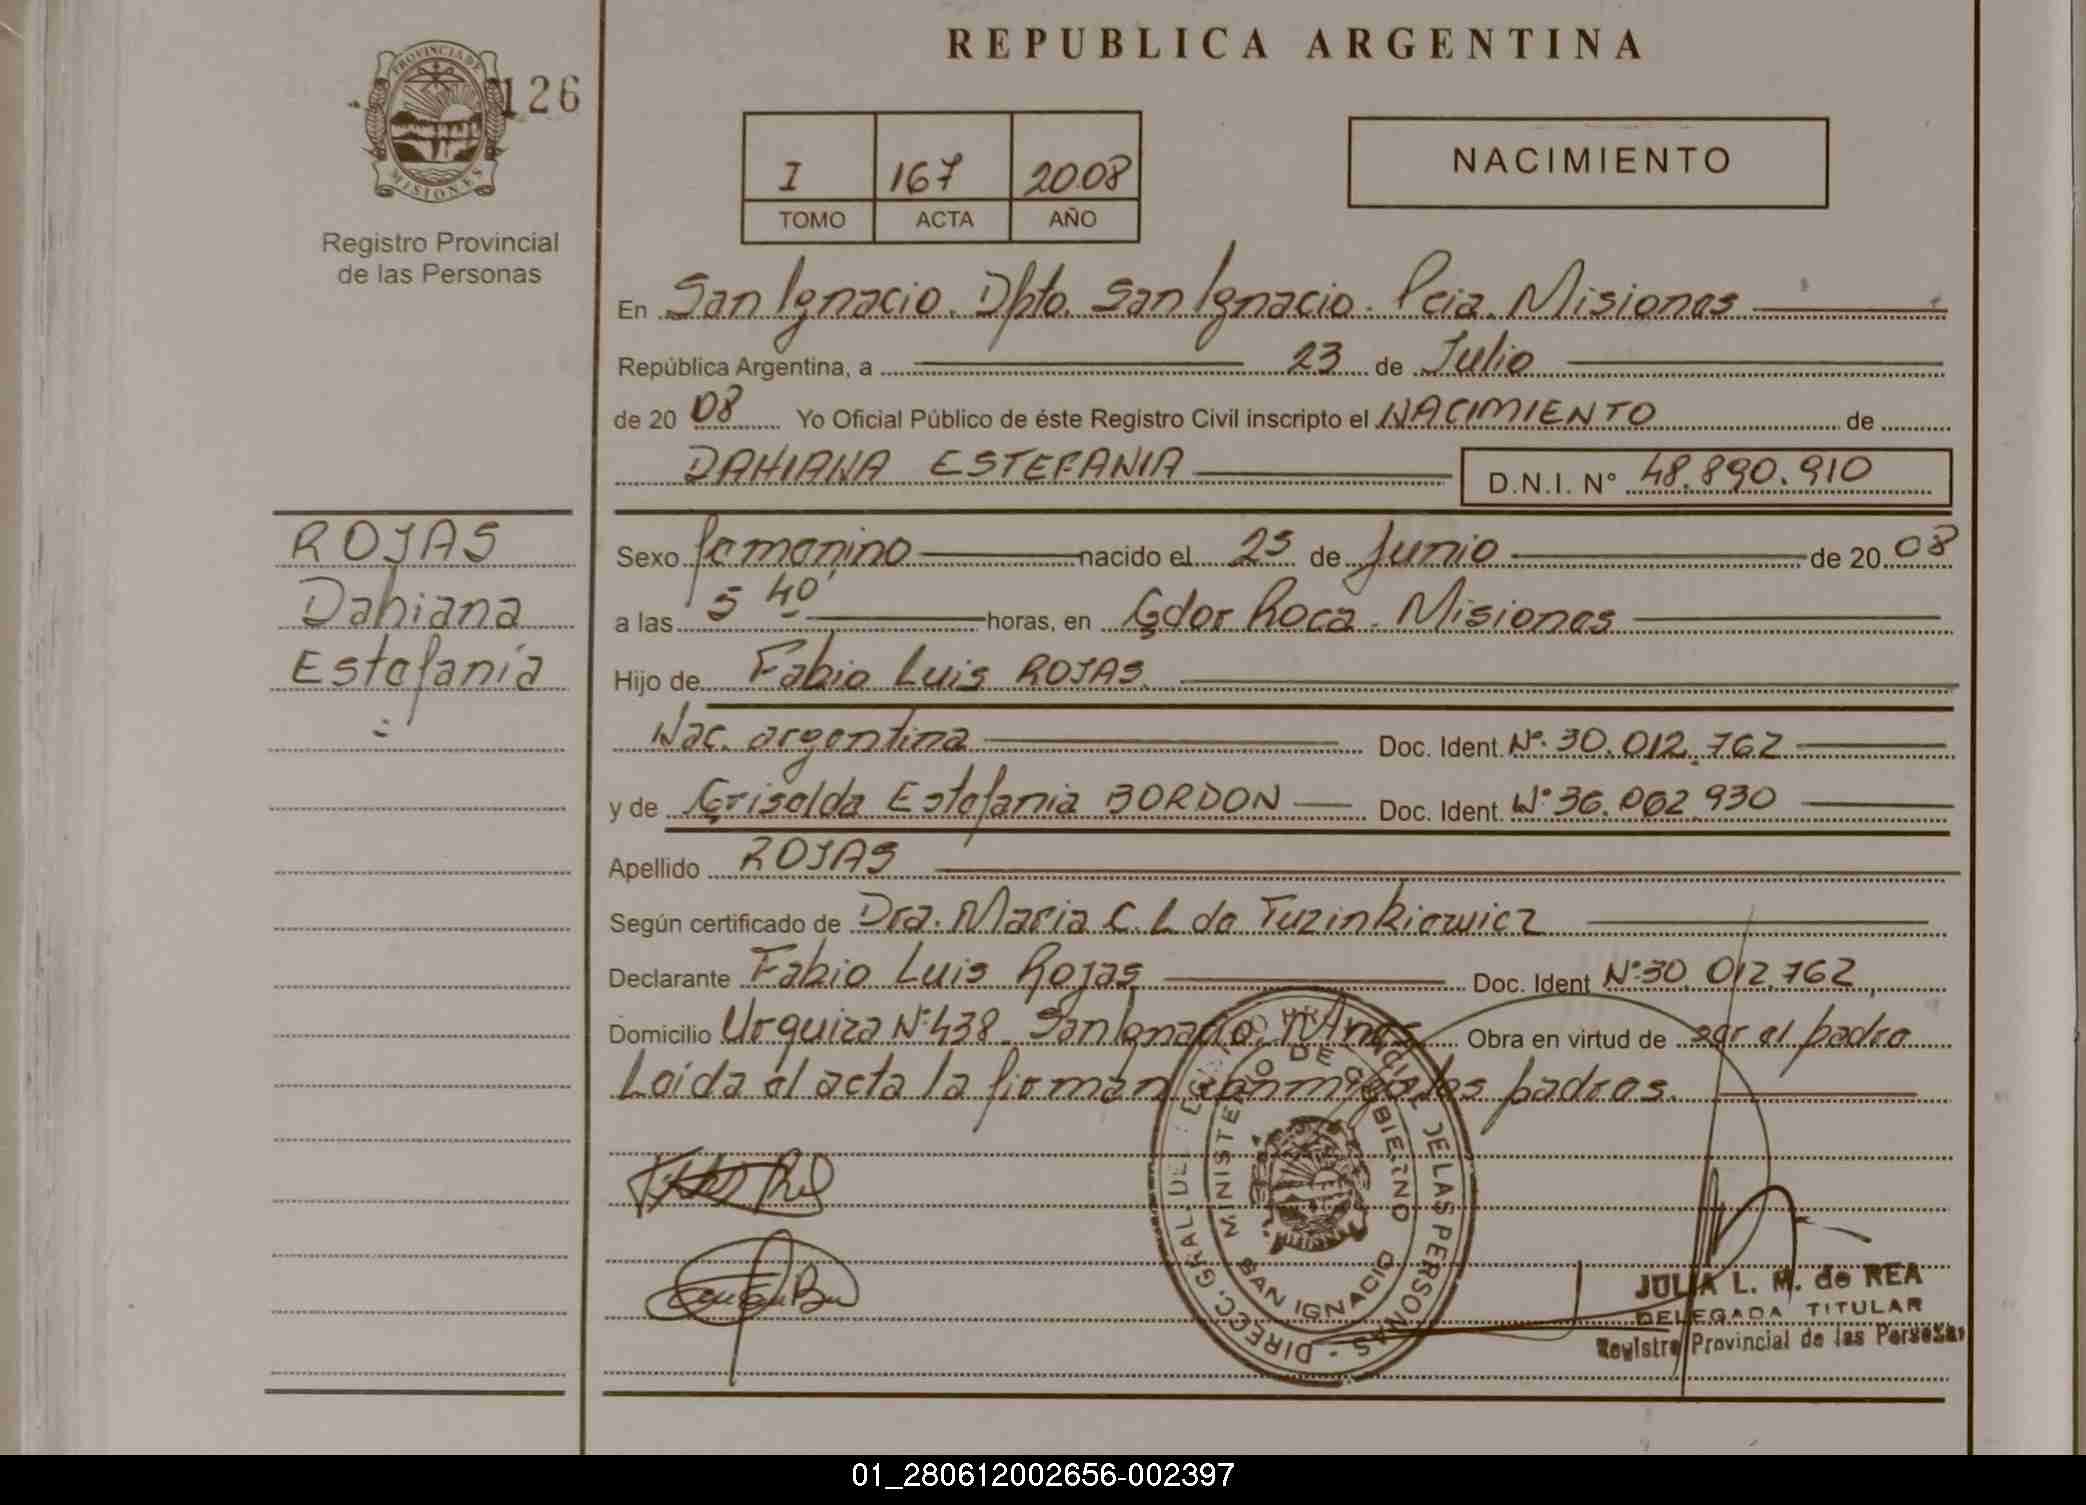 REPUBLICA ARGENTINA
PROVINCIA DE MISIONES
126
Registro Provincial
de las Personas
I 167 2008
TOMO ACTA AÑO
NACIMIENTO
En San Ignacio. Dpto. San Ignacio. Pcia. Misiones
República Argentina, a 23 de Julio
de 20 08 Yo Oficial Público de éste Registro Civil inscripto el NACIMIENTO de
DAHIANA ESTEFANIA D.N.I. N° 48.890.910
ROJAS
Dahiana
Estefanía
Sexo femenino nacido el 25 de Junio de 20 08
a las 5 40' horas, en Gdor Roca. Misiones
Hijo de Fabio Luis ROJAS
Nac. argentina Doc. Ident. N°. 30.012.762
y de Griselda Estefania BORDON Doc. Ident. N° 36.062.930
Apellido ROJAS
Según certificado de Dra. Maria C. L de Tuzinkiewicz
Declarante Fabio Luis Rojas Doc. Ident N°30.012.762
Domicilio Urquiza N°438. San Ignacio, Mnes Obra en virtud de ser el padre
Leida el acta la firman conmigo los padres.
DIREC. GRAL. DEL REGISTRO PROVINCIAL DE LAS PERSONAS -
MINISTERIO DE GOBIERNO
SAN IGNACIO
JULIA L. M. de REA
DELEGADA TITULAR
Registro Provincial de las Personas
01_280612002656-002397